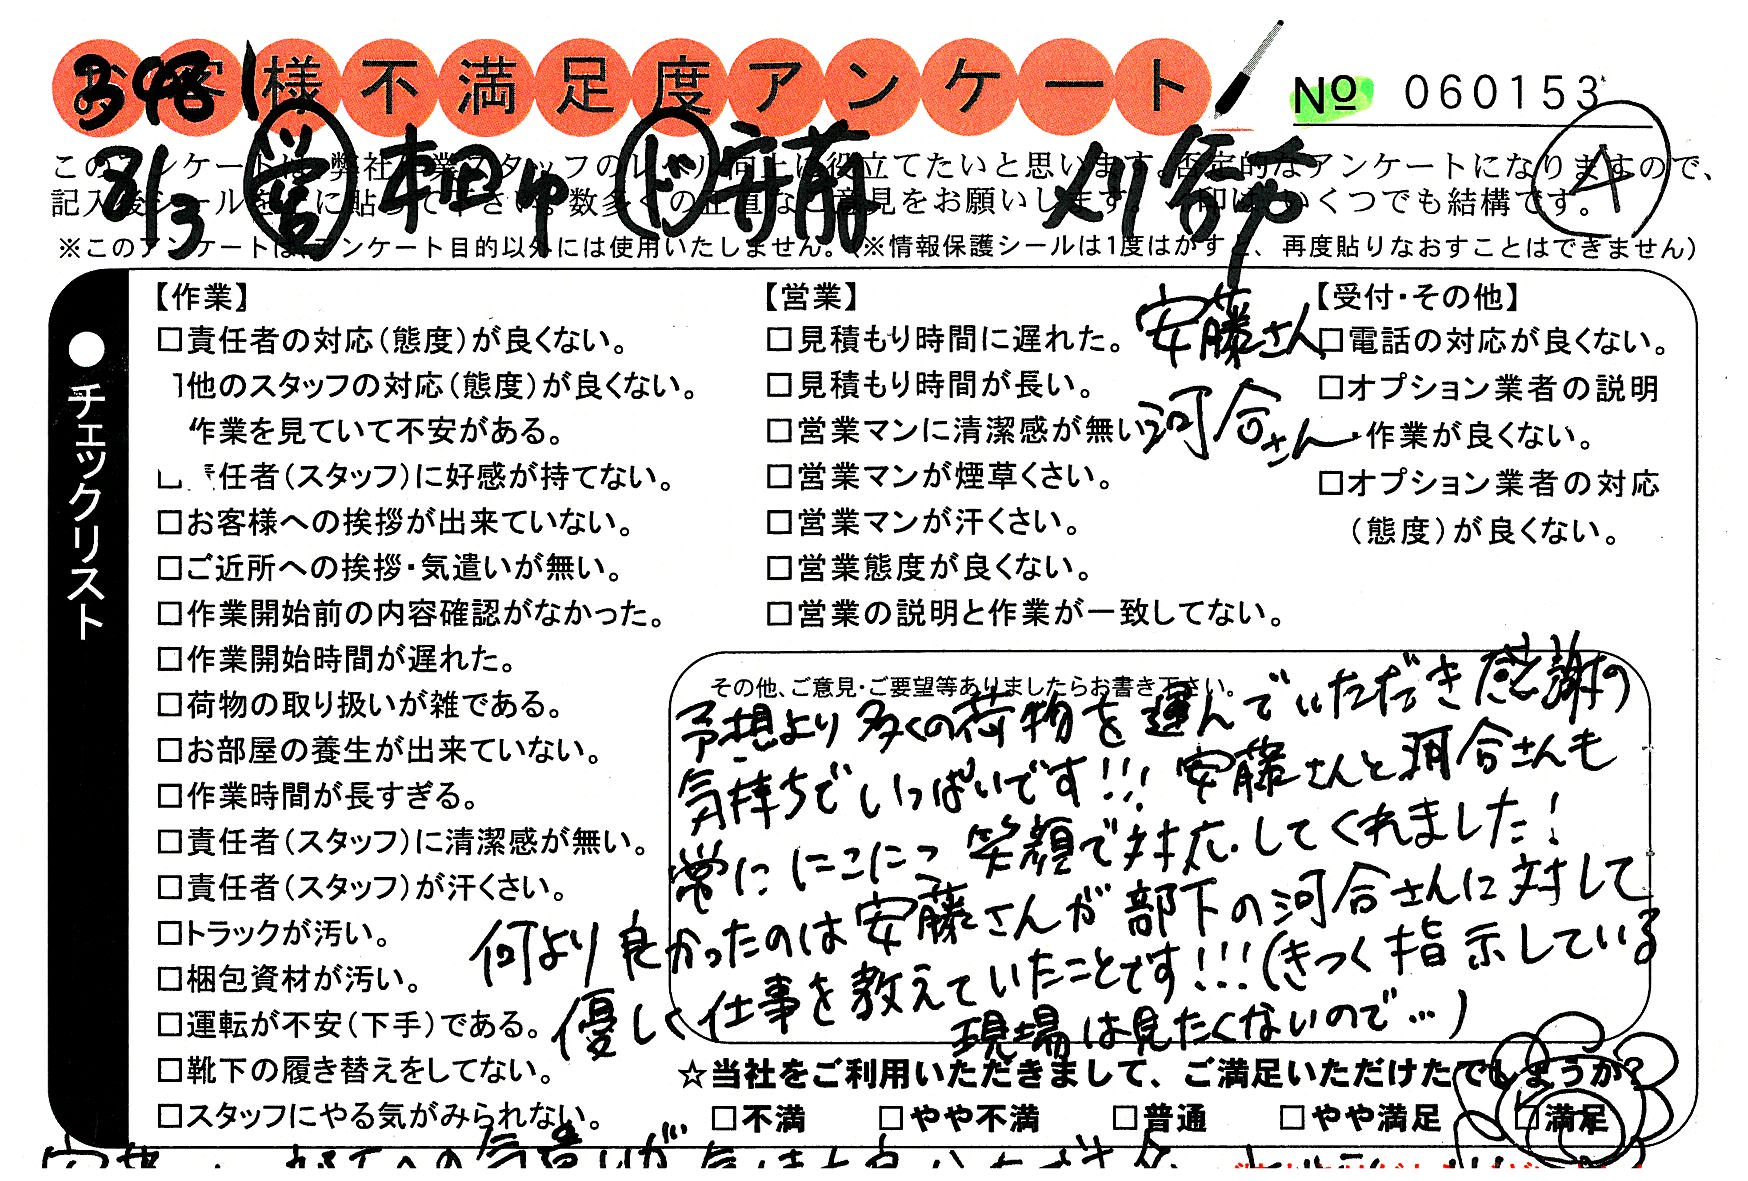 お客様不満足度アンケート
No 060153
3481
8/3 営 ド 安藤
4
このアンケートは、弊社作業スタッフのレベル向上に役立てたいと思います。否定的なアンケートになりますので、
記入後シールを上に貼って下さい。数多くの正直なご意見をお願いします。 印は、いくつでも結構です。
※このアンケートはアンケート目的以外には使用いたしません。(※情報保護シールは1度はがすと、再度貼りなおすことはできません)
●チェックリスト
【作業】
□責任者の対応(態度)が良くない。
他のスタッフの対応(態度)が良くない。
作業を見ていて不安がある。
責任者(スタッフ)に好感が持てない。
□お客様への挨拶が出来ていない。
□ご近所への挨拶・気遣いが無い。
□作業開始前の内容確認がなかった。
□作業開始時間が遅れた。
□荷物の取り扱いが雑である。
□お部屋の養生が出来ていない。
□作業時間が長すぎる。
□責任者(スタッフ)に清潔感が無い。
□責任者(スタッフ)が汗くさい。
□トラックが汚い。
□梱包資材が汚い。
□運転が不安(下手)である。
□靴下の履き替えをしてない。
□スタッフにやる気がみられない。
【営業】
□見積もり時間に遅れた。
□見積もり時間が長い。
□営業マンに清潔感が無い
□営業マンが煙草くさい。
□営業マンが汗くさい。
□営業態度が良くない。
□営業の説明と作業が一致してない。
安藤さん
河合さん
【受付・その他】
□電話の対応が良くない。
□オプション業者の説明
・作業が良くない。
□オプション業者の対応
(態度)が良くない。
その他、ご意見・ご要望等ありましたらお書き下さい。
予想より多くの荷物を運んでいただき感謝の
気持ちでいっぱいです!!! 安藤さんと河合さんも
常ににこにこ笑顔で対応してくれました!
何より良かったのは安藤さんが部下の河合さんに対して
優しく仕事を教えていたことです!!!(きつく指示している
現場は見たくないので…)
☆当社をご利用いただきまして、ご満足いただけたでしょうか?
□不満 □やや不満 □普通 □やや満足 □満足